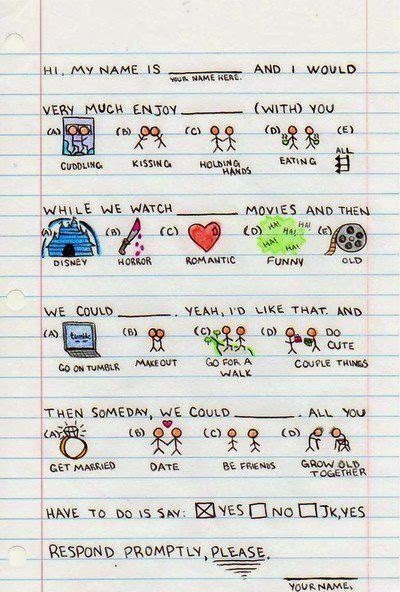 HI, MY NAME IS ________ AND I WOULD
YOUR NAME HERE.
VERY MUCH ENJOY ________ (WITH) YOU
(A) (B) (C) (D) (E)
CUDDLING KISSING HOLDING HANDS EATING ALL
WHILE WE WATCH ________ MOVIES AND THEN
(A) (B) (C) (D) (E)
HA! HA! HA! HA!
DISNEY HORROR ROMANTIC FUNNY OLD
WE COULD ________. YEAH, I'D LIKE THAT. AND
(A) (B) (C) (D) DO CUTE
tumblr
GO ON TUMBLR MAKEOUT GO FOR A WALK COUPLE THINGS
THEN SOMEDAY, WE COULD ________. ALL YOU
(A) (B) (C) (D)
GET MARRIED DATE BE FRIENDS GROW OLD TOGETHER
HAVE TO DO IS SAY: ☒ YES ☐ NO ☐ JK, YES
RESPOND PROMPTLY, PLEASE.
YOUR NAME.